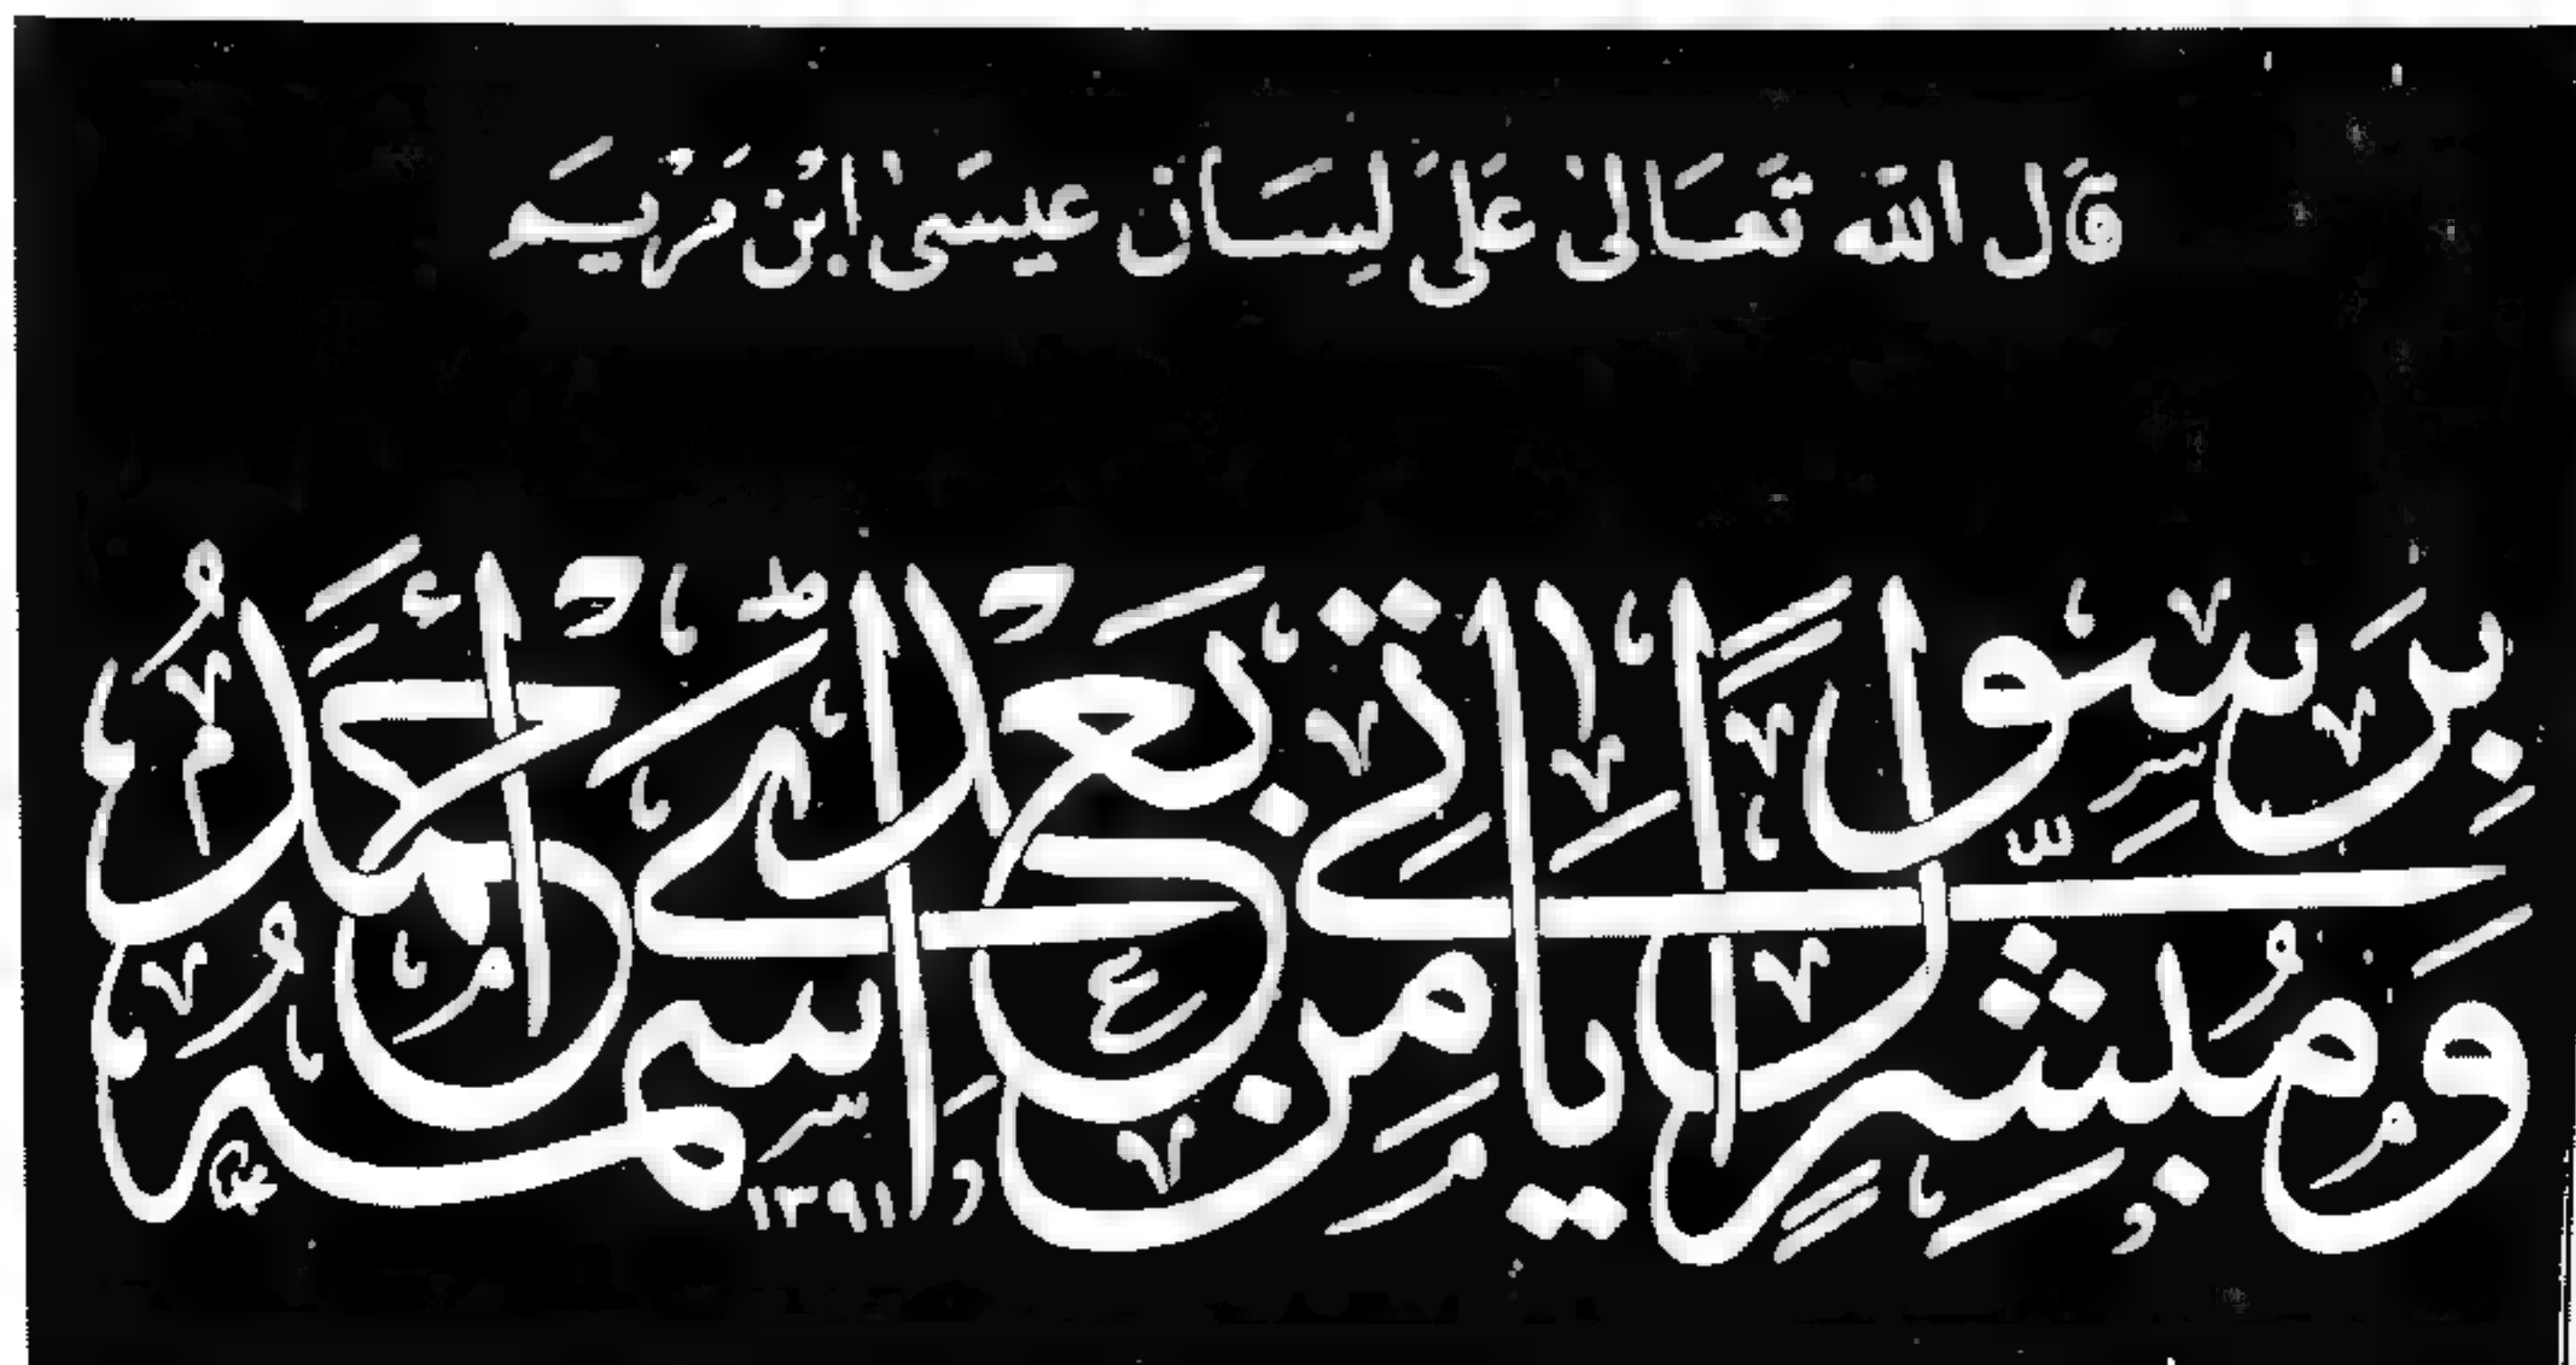 قَالَ اللّٰه تَعَالىٰ عَلىٰ لِسَان عِيسَىٰ ابْن مَرْيَم
وَمُبَشِّرًا بِرَسُولٍ يَأْتِي مِنْ بَعْدِي اسْمُهُ أَحْمَدُ
١٣٩١